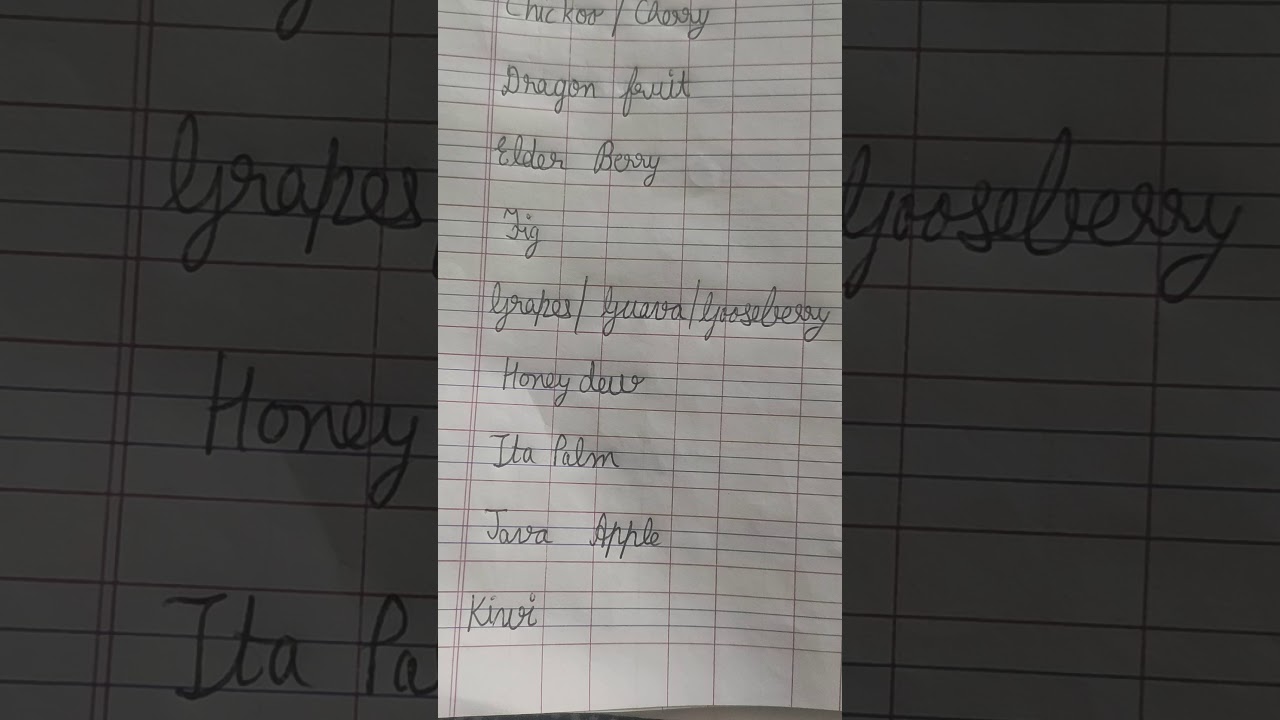 Chickoo / Cherry
Dragon fruit
Elder Berry
Fig
Grapes / Guava / Gooseberry
Honey dew
Ita Palm
Java Apple
Kiwi